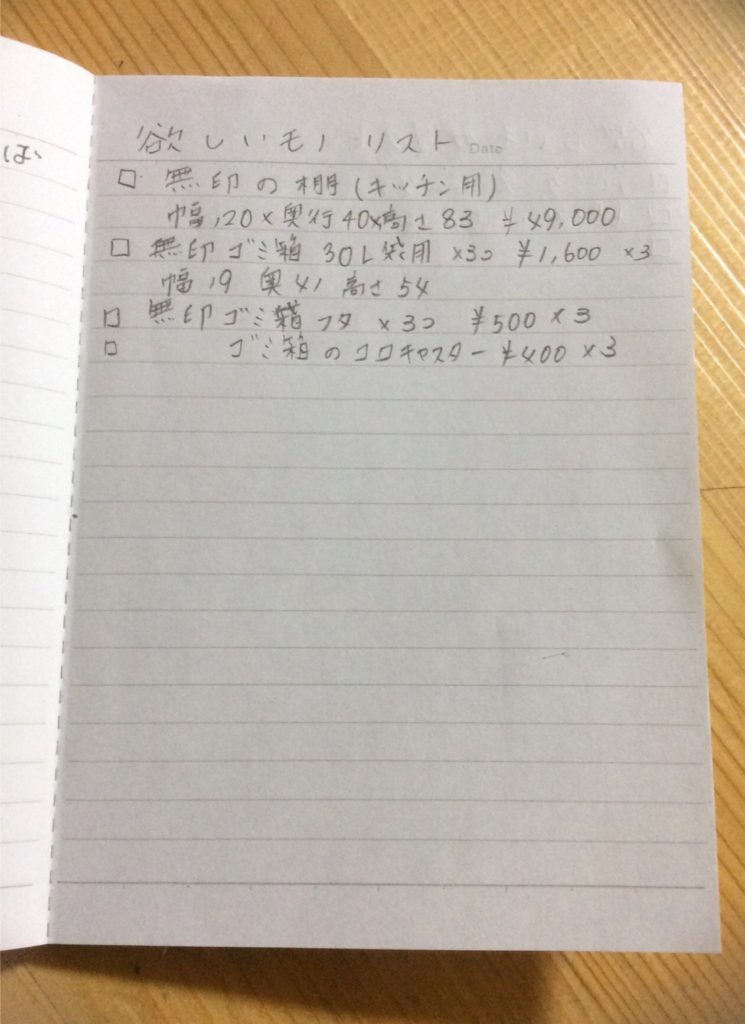 ば、
欲しいモノリスト
Date
□ 無印の棚(キッチン用)
幅120×奥行40×高さ83 ¥49,000
□ 無印ゴミ箱 30L袋用 ×3コ ¥1,600 ×3
幅19 奥41 高さ54
□ 無印ゴミ箱フタ ×3コ ¥500×3
□ ゴミ箱のコロキャスター ¥400×3